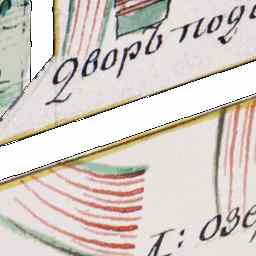 Дворъ под
д: озе